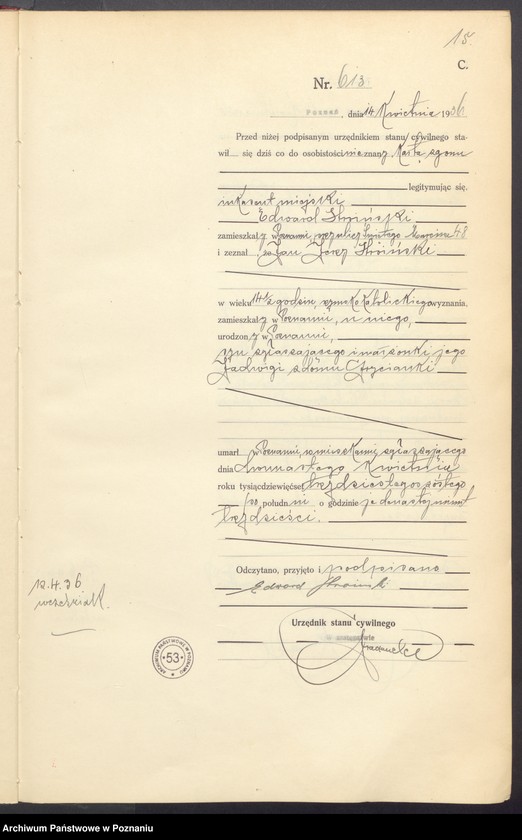 15
C.
Nr. 613.
Poznań, dnia 14 Kwietnia 1936
Przed niżej podpisanym urzędnikiem stanu cywilnego sta-
wił się dziś co do osobistości nieznany, Kartą zgonu
legitymując się.
inkasent miejski
Edward Stroiński
zamieszkały w Poznaniu, przy ulicy Świętego Marcina 48
i zeznał, że Jan Jerzy Stroiński
w wieku 14½ godzin, rzymskokatolickiego wyznania,
zamieszkały w Poznaniu, u niego,
urodzony w Poznaniu,
syn zgłaszającego i małżonki jego
Jadwigi z domu
umarł w Poznaniu, w mieszkaniu zgłaszającego
dnia dwunastego Kwietnia
roku tysiącdziewięćset trzydziestego szóstego
po południu o godzinie jedenastej minut
trzydzieści.
Odczytano, przyjęto i podpisano
Edward Stroiński
Urzędnik stanu cywilnego
w zastępstwie
12.4.36
ARCHIWUM PAŃSTWOWE W POZNANIU
53
Archiwum Państwowe w Poznaniu